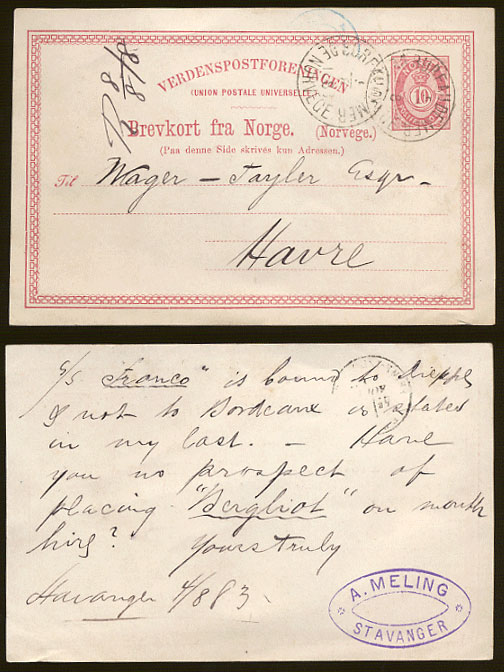 R 8/8/8
VERDENSPOSTFORENINGEN
(UNION POSTALE UNIVERSELLE)
10
Brevkort fra Norge. (Norvège.)
(Paa denne Side skrives kun Adressen.)
Til Mager – Tayler Esqr –
Havre
S/S "Franco" is bound to Dieppe
& not to Bordeaux as stated
in my last. – Have
you no prospect of
placing "Bergliot" on month
hire? Yours truly
Stavanger 4/8 83.
A. MELING
STAVANGER